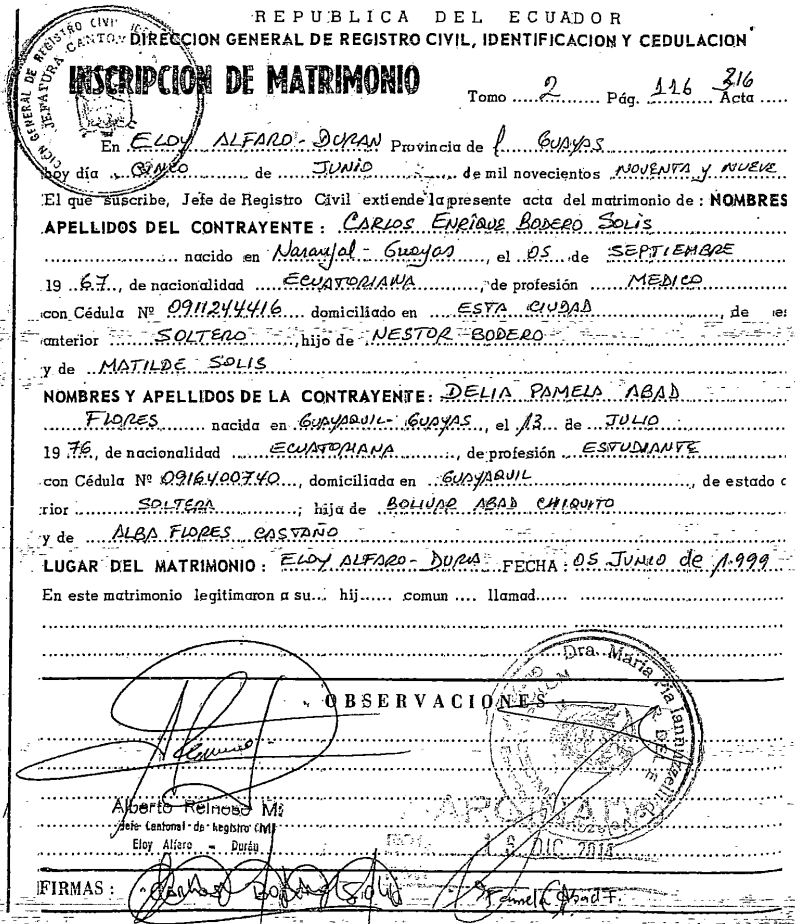 REPUBLICA DEL ECUADOR
DIRECCION GENERAL DE REGISTRO CIVIL, IDENTIFICACION Y CEDULACION
INSCRIPCION DE MATRIMONIO
Tomo ....2.... Pág. ..116.. 216 Acta .....
En ELOY ALFARO - DURAN Provincia de GUAYAS
hoy día CINCO de JUNIO de mil novecientos NOVENTA y NUEVE
El que suscribe, Jefe de Registro Civil extiende la presente acta del matrimonio de : NOMBRES
APELLIDOS DEL CONTRAYENTE : CARLOS ENRIQUE BODERO SOLIS
.................... nacido en Naranjal - Guayas, el 05 de SEPTIEMBRE
19 67, de nacionalidad ECUATORIANA, de profesión MEDICO
con Cédula Nº 0911244416 domiciliado en ESTA CIUDAD, de es
anterior SOLTERO, hijo de NESTOR BODERO
y de MATILDE SOLIS
NOMBRES Y APELLIDOS DE LA CONTRAYENTE: DELIA PAMELA ABAD
FLORES nacida en GUAYAQUIL - GUAYAS, el 13 de JULIO
19 76, de nacionalidad ECUATORIANA, de profesión ESTUDIANTE
con Cédula Nº 0916400740, domiciliada en GUAYAQUIL, de estado c
rior SOLTERA; hija de BOLIVAR ABAD CHIQUITO
y de ALBA FLORES CASTAÑO
LUGAR DEL MATRIMONIO : ELOY ALFARO - DURA FECHA : 05 JUNIO de 1.999
En este matrimonio legitimaron a su... hij...... comun .... llamad......
Dra. María Pia Iannuzzelli
OBSERVACIONES
Alberto Reinoso M.
Jefe Cantonal de Registro Civil
Eloy Alfaro - Durán
DIC. 2014
FIRMAS : Carlos Bodero Solis Pamela Abad F.